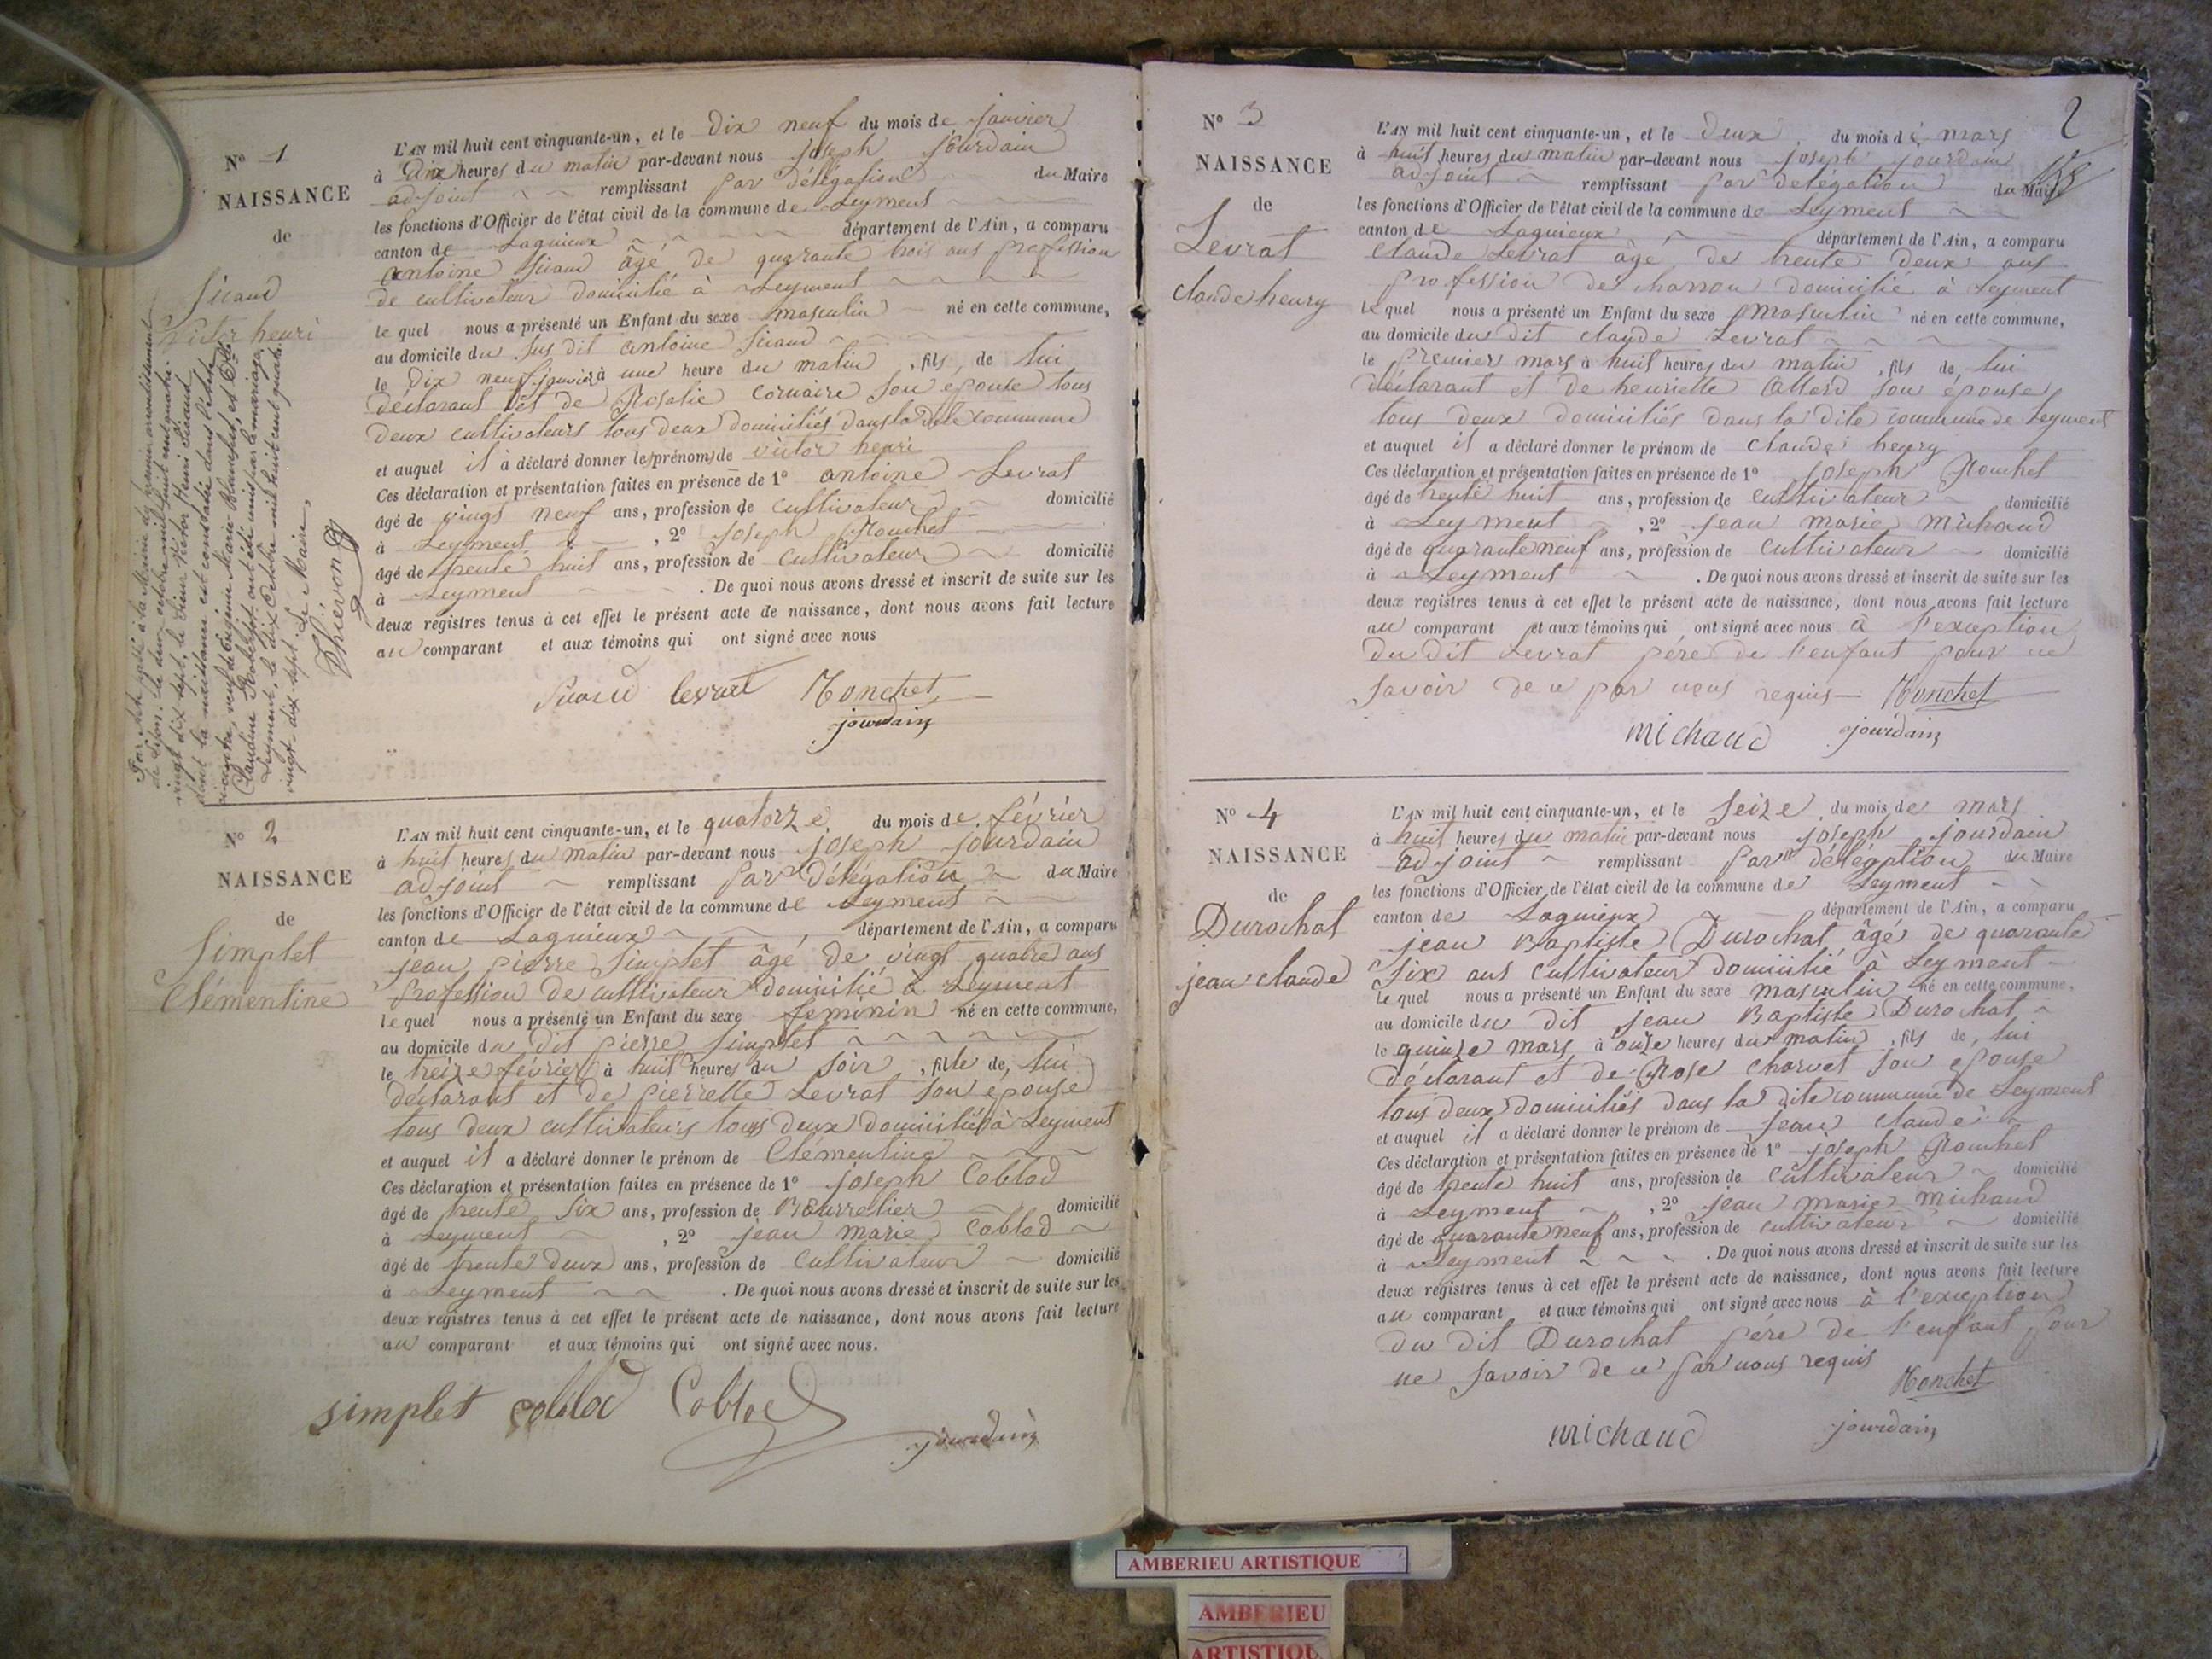 N° 1
NAISSANCE
de
Sicaud
Victor henri
L'AN mil huit cent cinquante-un, et le dix neuf du mois de janvier
à dix heures du matin par-devant nous joseph jourdain
adjoint remplissant par délégation du Maire
les fonctions d'Officier de l'état civil de la commune de Leyment
canton de Lagnieux département de l'Ain, a comparu
antoine Sicaud âgé de quarante trois ans profession
de cultivateur domicilié à Leyment
le quel nous a présenté un Enfant du sexe masculin né en cette commune,
au domicile du sus dit antoine Sicaud
le dix neuf janvier à une heure du matin, fils de lui
déclarant et de Rosalie Cornaire son epouse tous
deux cultivateurs tous deux domiciliés dans la dite commune
et auquel il a déclaré donner les prénoms de victor henri
Ces déclaration et présentation faites en présence de 1° antoine Levrat
âgé de vingt neuf ans, profession de cultivateur domicilié
à Leyment, 2° joseph Monchet
âgé de trente huit ans, profession de cultivateur domicilié
à Leyment. De quoi nous avons dressé et inscrit de suite sur les
deux registres tenus à cet effet le présent acte de naissance, dont nous avons fait lecture
au comparant et aux témoins qui ont signé avec nous
Sicaud levrat Monchet
jourdain
vingt dix-sept, le sieur Victor Henri Sicaud,
dont la naissance est constatée dans l'acte
Leyment, le dix Octobre mil huit cent quatre
vingt-dix-sept. Le Maire,
Thievon
N° 2
NAISSANCE
de
Simplet
Clémentine
L'AN mil huit cent cinquante-un, et le quatorze du mois de février
à huit heures du matin par-devant nous joseph jourdain
adjoint remplissant par délégation du Maire
les fonctions d'Officier de l'état civil de la commune de Leyment
canton de Lagnieux, département de l'Ain, a comparu
jean pierre Simplet âgé de vingt quatre ans
profession de cultivateur domicilié à Leyment
le quel nous a présenté un Enfant du sexe feminin né en cette commune,
au domicile du dit pierre Simplet
le treize février à huit heures du soir, fille de, lui
déclarant et de pierrette Levrat son épouse
tous deux cultivateurs tous deux domiciliés à Leyment
et auquel il a déclaré donner le prénom de Clémentine
Ces déclaration et présentation faites en présence de 1° joseph Coblod
âgé de trente six ans, profession de Bourrelier domicilié
à Leyment, 2° jean marie Coblod
âgé de trente deux ans, profession de cultivateur domicilié
à Leyment. De quoi nous avons dressé et inscrit de suite sur les
deux registres tenus à cet effet le présent acte de naissance, dont nous avons fait lecture
au comparant et aux témoins qui ont signé avec nous.
simplet coblod Coblod
jourdain
2
N° 3
NAISSANCE
de
Levrat
claude henry
L'AN mil huit cent cinquante-un, et le deux du mois de mars
à huit heures du matin par-devant nous joseph jourdain
adjoint remplissant par délégation du Maire
les fonctions d'Officier de l'état civil de la commune de Leyment
canton de Lagnieux département de l'Ain, a comparu
claude Levrat âgé de trente deux ans
profession de charron domicilié à Leyment
le quel nous a présenté un Enfant du sexe masculin né en cette commune,
au domicile du dit claude Levrat
le premier mars à huit heures du matin, fils de, lui
déclarant et de henriette Collard son épouse
tous deux domiciliés dans la dite commune de Leyment
et auquel il a déclaré donner le prénom de claude henry
Ces déclaration et présentation faites en présence de 1° joseph Monchet
âgé de trente huit ans, profession de cultivateur domicilié
à Leyment, 2° jean marie michaud
âgé de quarante neuf ans, profession de cultivateur domicilié
à Leyment. De quoi nous avons dressé et inscrit de suite sur les
deux registres tenus à cet effet le présent acte de naissance, dont nous avons fait lecture
au comparant et aux témoins qui ont signé avec nous à l'exception
du dit Levrat père de l'enfant pour ne
savoir de ce par nous requis Monchet
michaud jourdain
N° 4
NAISSANCE
de
Durochat
jean claude
L'AN mil huit cent cinquante-un, et le seize du mois de mars
à huit heures du matin par-devant nous joseph jourdain
adjoint remplissant par délégation du Maire
les fonctions d'Officier de l'état civil de la commune de Leyment
canton de Lagnieux département de l'Ain, a comparu
jean Baptiste Durochat âgé de quarante
six ans cultivateur domicilié à Leyment
le quel nous a présenté un Enfant du sexe masculin né en cette commune,
au domicile du dit jean Baptiste Durochat
le quinze mars à onze heures du matin, fils de, lui
déclarant et de Rose charvet son epouse
tous deux domiciliés dans la dite commune de Leyment
et auquel il a déclaré donner le prénom de jean claude
Ces déclaration et présentation faites en présence de 1° joseph Monchet
âgé de trente huit ans, profession de cultivateur domicilié
à Leyment, 2° jean marie michaud
âgé de quarante neuf ans, profession de cultivateur domicilié
à Leyment. De quoi nous avons dressé et inscrit de suite sur les
deux registres tenus à cet effet le présent acte de naissance, dont nous avons fait lecture
au comparant et aux témoins qui ont signé avec nous à l'exception
du dit Durochat père de l'enfant pour
ne savoir de ce par nous requis
Monchet
michaud jourdain
AMBERIEU ARTISTIQUE
AMBERIEU
ARTISTIQU